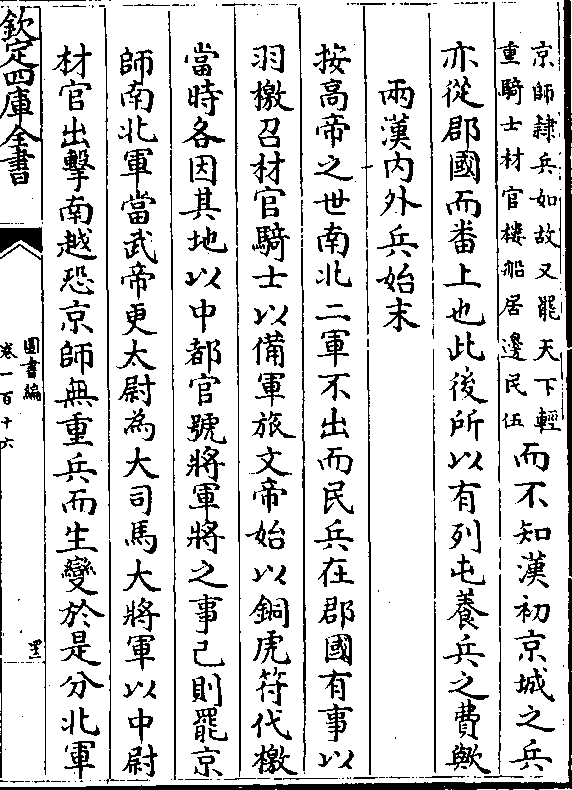 京師隷兵如故又罷天下輕
重騎士材官樓船居邊民伍
而不知漢初京城之兵
亦從郡國而畨上也此後所以有列屯養兵之費歟
兩漢内外兵始末
按高帝之世南北二軍不出而民兵在郡國有事以
羽檄召材官騎士以備軍旅文帝始以銅虎符代檄
當時各因其地以中都官號將軍將之事已則罷京
師南北軍當武帝更太尉為大司馬大將軍以中尉
材官出擊南越恐京師無重兵而生變於是分北軍
欽定四庫全書
圖書編
卷一百十六